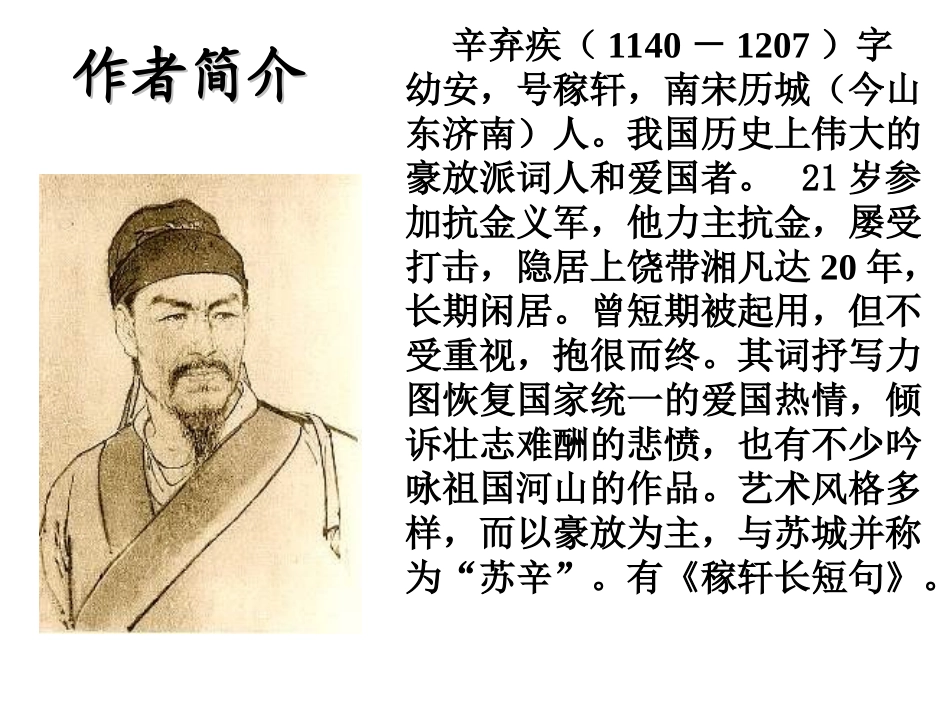 作者简介
辛弃疾（ 1140 － 1207 ）字
幼安，号稼轩，南宋历城（今山
东济南）人。我国历史上伟大的
豪放派词人和爱国者。 21 岁参
加抗金义军，他力主抗金，屡受
打击，隐居上饶带湘凡达 20 年，
长期闲居。曾短期被起用，但不
受重视，抱很而终。其词抒写力
图恢复国家统一的爱国热情，倾
诉壮志难酬的悲愤，也有不少吟
咏祖国河山的作品。艺术风格多
样，而以豪放为主，与苏城并称
为“苏辛”。有《稼轩长短句》。